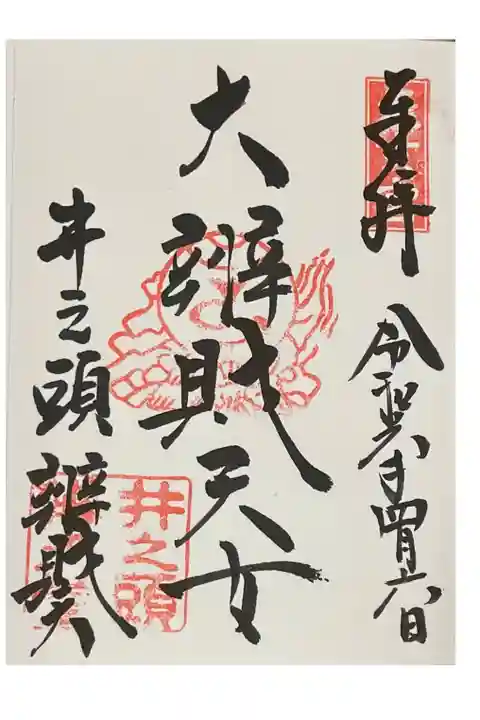 奉拝
令和六年四月六日
大辨財天女
井之頭
辨財天
井之頭